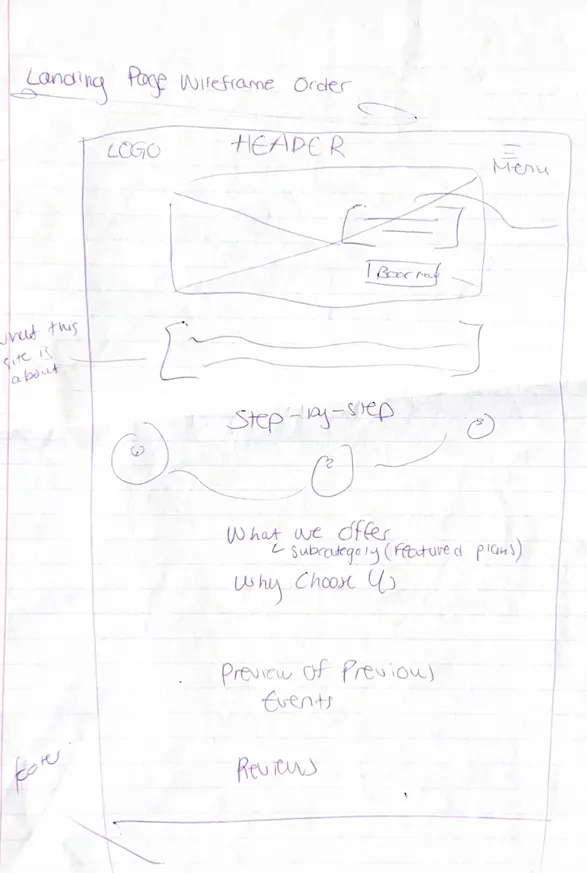 Landing Page Wireframe Order
LOGO HEADER Menu
Book now
what this
site is
about
Step-by-step
1 2 3
What we offer
subcategory (Featured plans)
Why Choose Us
Preview of Previous
Events
Reviews
footer